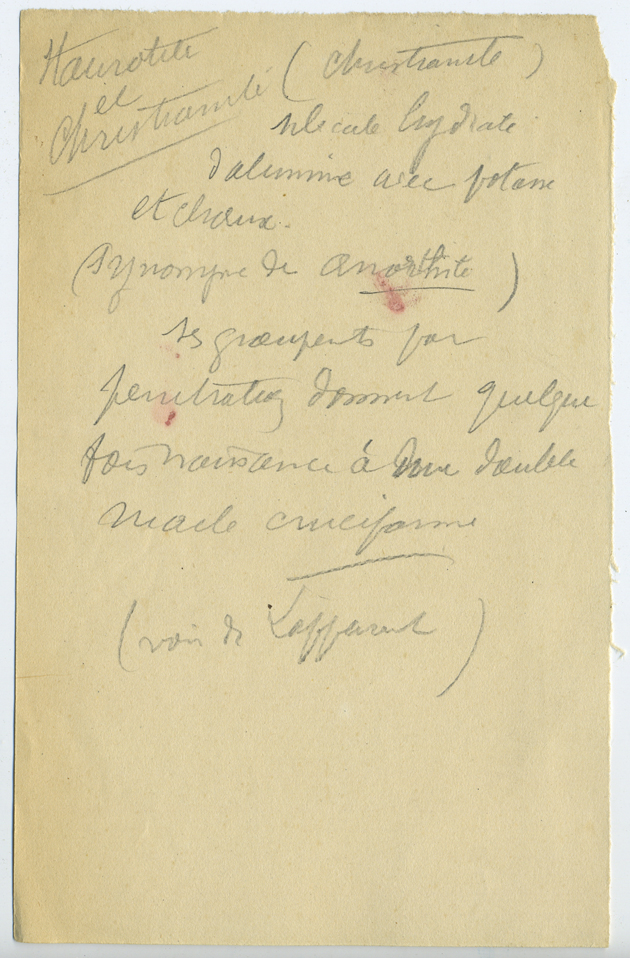 Staurotite
et
Christianite
(Christianite)
silicate hydraté
d'alumine avec potasse
et chaux.
(Synonyme de anorthite)
ses groupements par
penetration donnent quelque
fois naissance à une double
macle cruciforme
(voir de Lapparent)